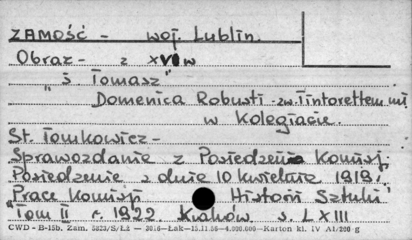 ZAMOŚĆ - woj. Lublin.
Obraz - z XVI w
"Ś. Tomasz"
Domenica Robusti - zw. Tintorettem
w Kolegiacie.
St. Tomkowicz -
Sprawozdanie z Posiedzenia Komisj.
Posiedzenie z dnia 10 kwietnia 1919r.
Prace Komisji Historii Sztuki
"Tom II r. 1922. Kraków. s. LXIII
CWD - B-15b. Zam. 5823/S/Lż — 2016-Łak-15.11.56-4.000.000-Karton kl. IV A1/200 g